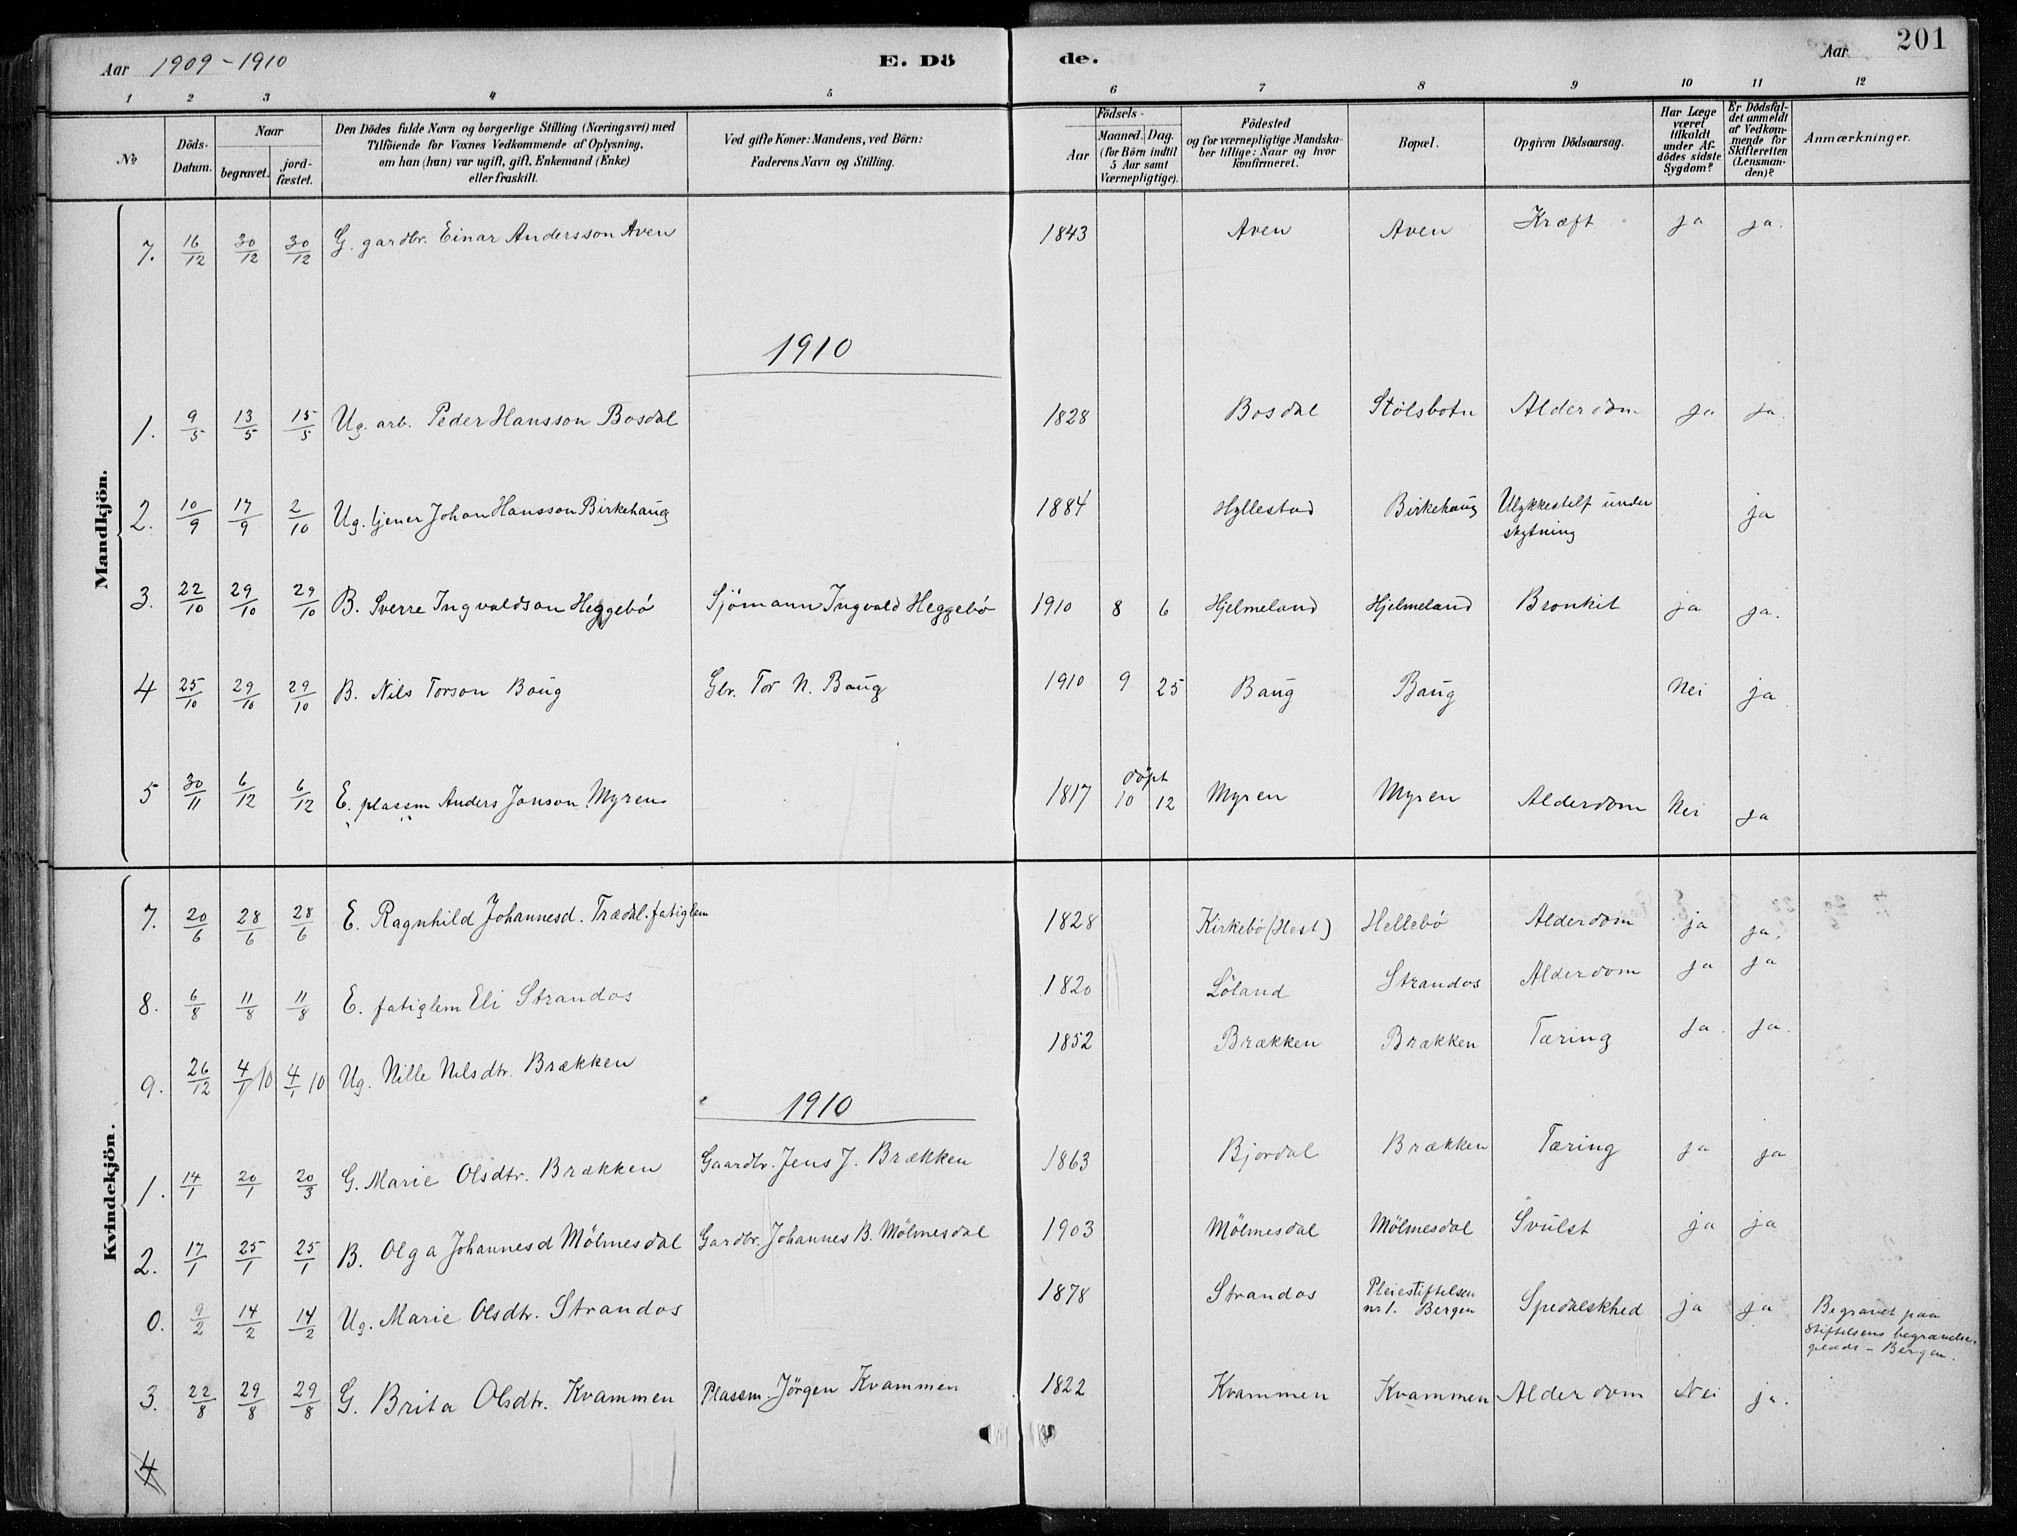 Aar 1909-1910 E. Dö de. Aar 201
1 2 3 4 5 6 7 8 9 10 11 12
No
Döds-Datum.
Naar
begravet.
jord-fæstet.
Den Dödes fulde Navn og borgerlige Stilling (Næringsvei) med
Tilföiende for Voxnes Vedkommende af Oplysning,
om han (hun) var ugift, gift, Enkemand (Enke)
eller fraskilt.
Ved gifte Koner: Mandens, ved Börn:
Faderens Navn og Stilling.
Födsels-
Aar
Maaned. Dag.
(for Börn indtil
5 Aar samt
Værnepligtige).
Födested
og for værnepligtige Mandska-
ber tillige: Naar og hvor
konfirmeret.
Bopæl.
Opgiven Dödsaarsag.
Har Læge
været
tilkaldt
under Af-
dödes sidste
Sygdom?
Er Dödsfal-
det anmeldt
af Vedkom-
mende for
Skifteretten
(Lensman-
den)?
Anmærkninger.
Mandkjön.
7. 16/12 30/12 30/12 G. gardbr. Einar Andersson Aven 1843 Aven Aven Kræft ja ja.
1910
1. 9/5 13/5 15/5 Ug. arb. Peder Hansson Bosdal 1828 Bosdal Stølsbotn Alderdom ja ja.
2. 10/9 17/9 2/10 Ug. tjener Johan Hansson Birkehaug 1884 Hyllestad Birkehaug Ulykkestelf under
skytning ja
3. 22/10 29/10 29/10 B. Sverre Ingvaldson Heggebö Sjömann Ingvald Heggebö 1910 8 6 Hjelmeland Hjelmeland Bronkit ja ja.
4 25/10 29/10 29/10 B. Nils Torson Baug Gbr. Tor N. Baug 1910 9 25 Baug Baug Nei ja
5 30/11 6/12 6/12 E. plassm Anders Jonson Myren 1817 döpt
10 12 Myren Myren Alderdom Nei ja
Kvindekjön.
7. 20/6 28/6 28/6 E. Ragnhild Johannesd. Trædal. fatiglem 1828 Kirkebö (Hest) Hellebö Alderdom ja ja.
8. 6/8 11/8 11/8 E. fatiglem Eli Strandos 1820 Löland Strandos Alderdom ja ja
9. 26/12 4/1 10 4/1 10 Ug. Nille Nilsdtr. Brækken 1852 Brækken Brækken Tæring ja. ja.
1910
1. 14/1 20/1 20/3 G. Marie Olsdtr. Brækken Gaardbr. Jens J. Brækken 1863 Bjordal Brækken Tæring ja ja
2. 17/1 25/1 25/1 B. Olga Johannesd Mølmesdal Gardbr. Johannes B. Mølmesdal 1903 Mølmesdal Mølmesdal Svulst ja ja
0. 9/2 14/2 14/2 Ug. Marie Olsdtr. Strandos 1878 Strandos Pleiestiftelsen
nr 1. Bergen Spedalskhed ja ja Begravet paa
Stiftelsens begravelses-
plads - Bergen.
3. 22/8 29/8 29/8 G. Brita Olsdtr. Kvammen Plassm. Jörgen Kvammen 1822 Kvammen Kvammen Alderdom Nei ja.
4